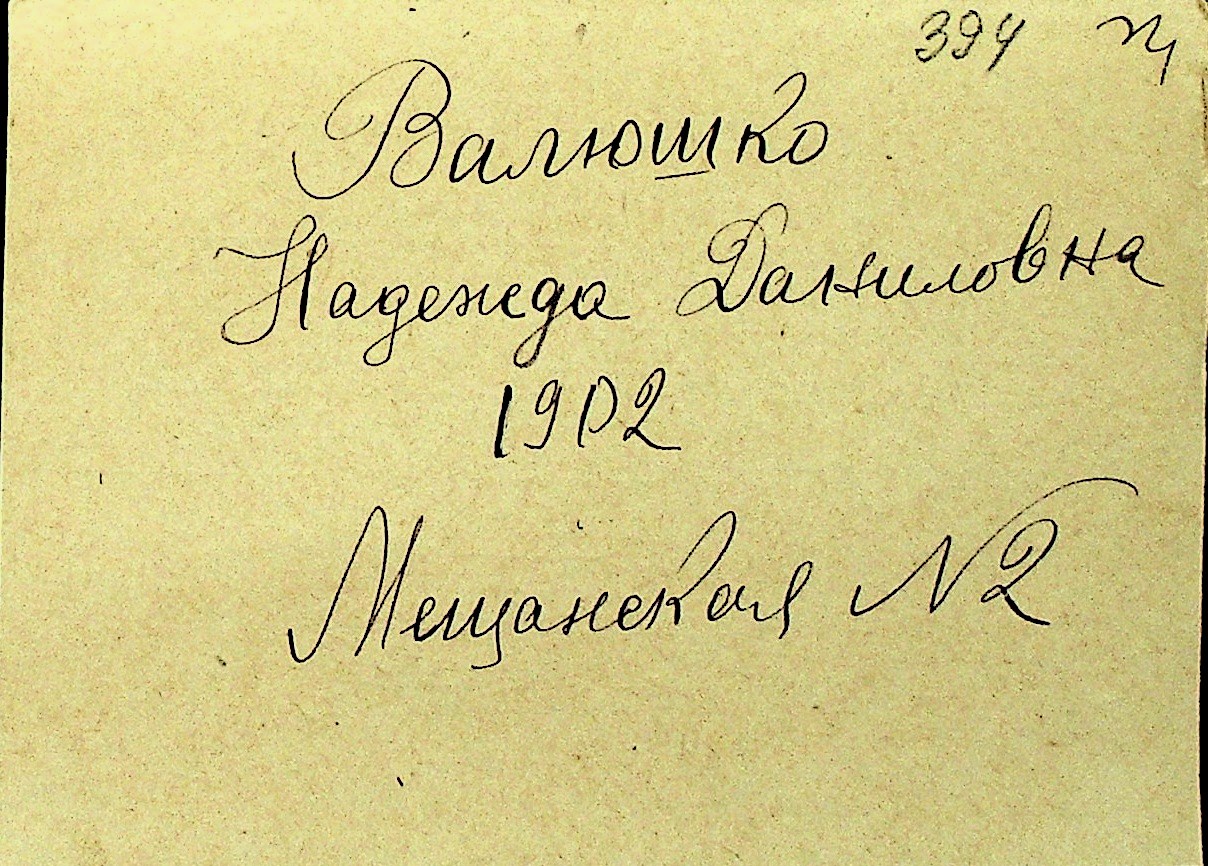 394
Валюшко
Надежда Даниловна
1902
Мещанская N2